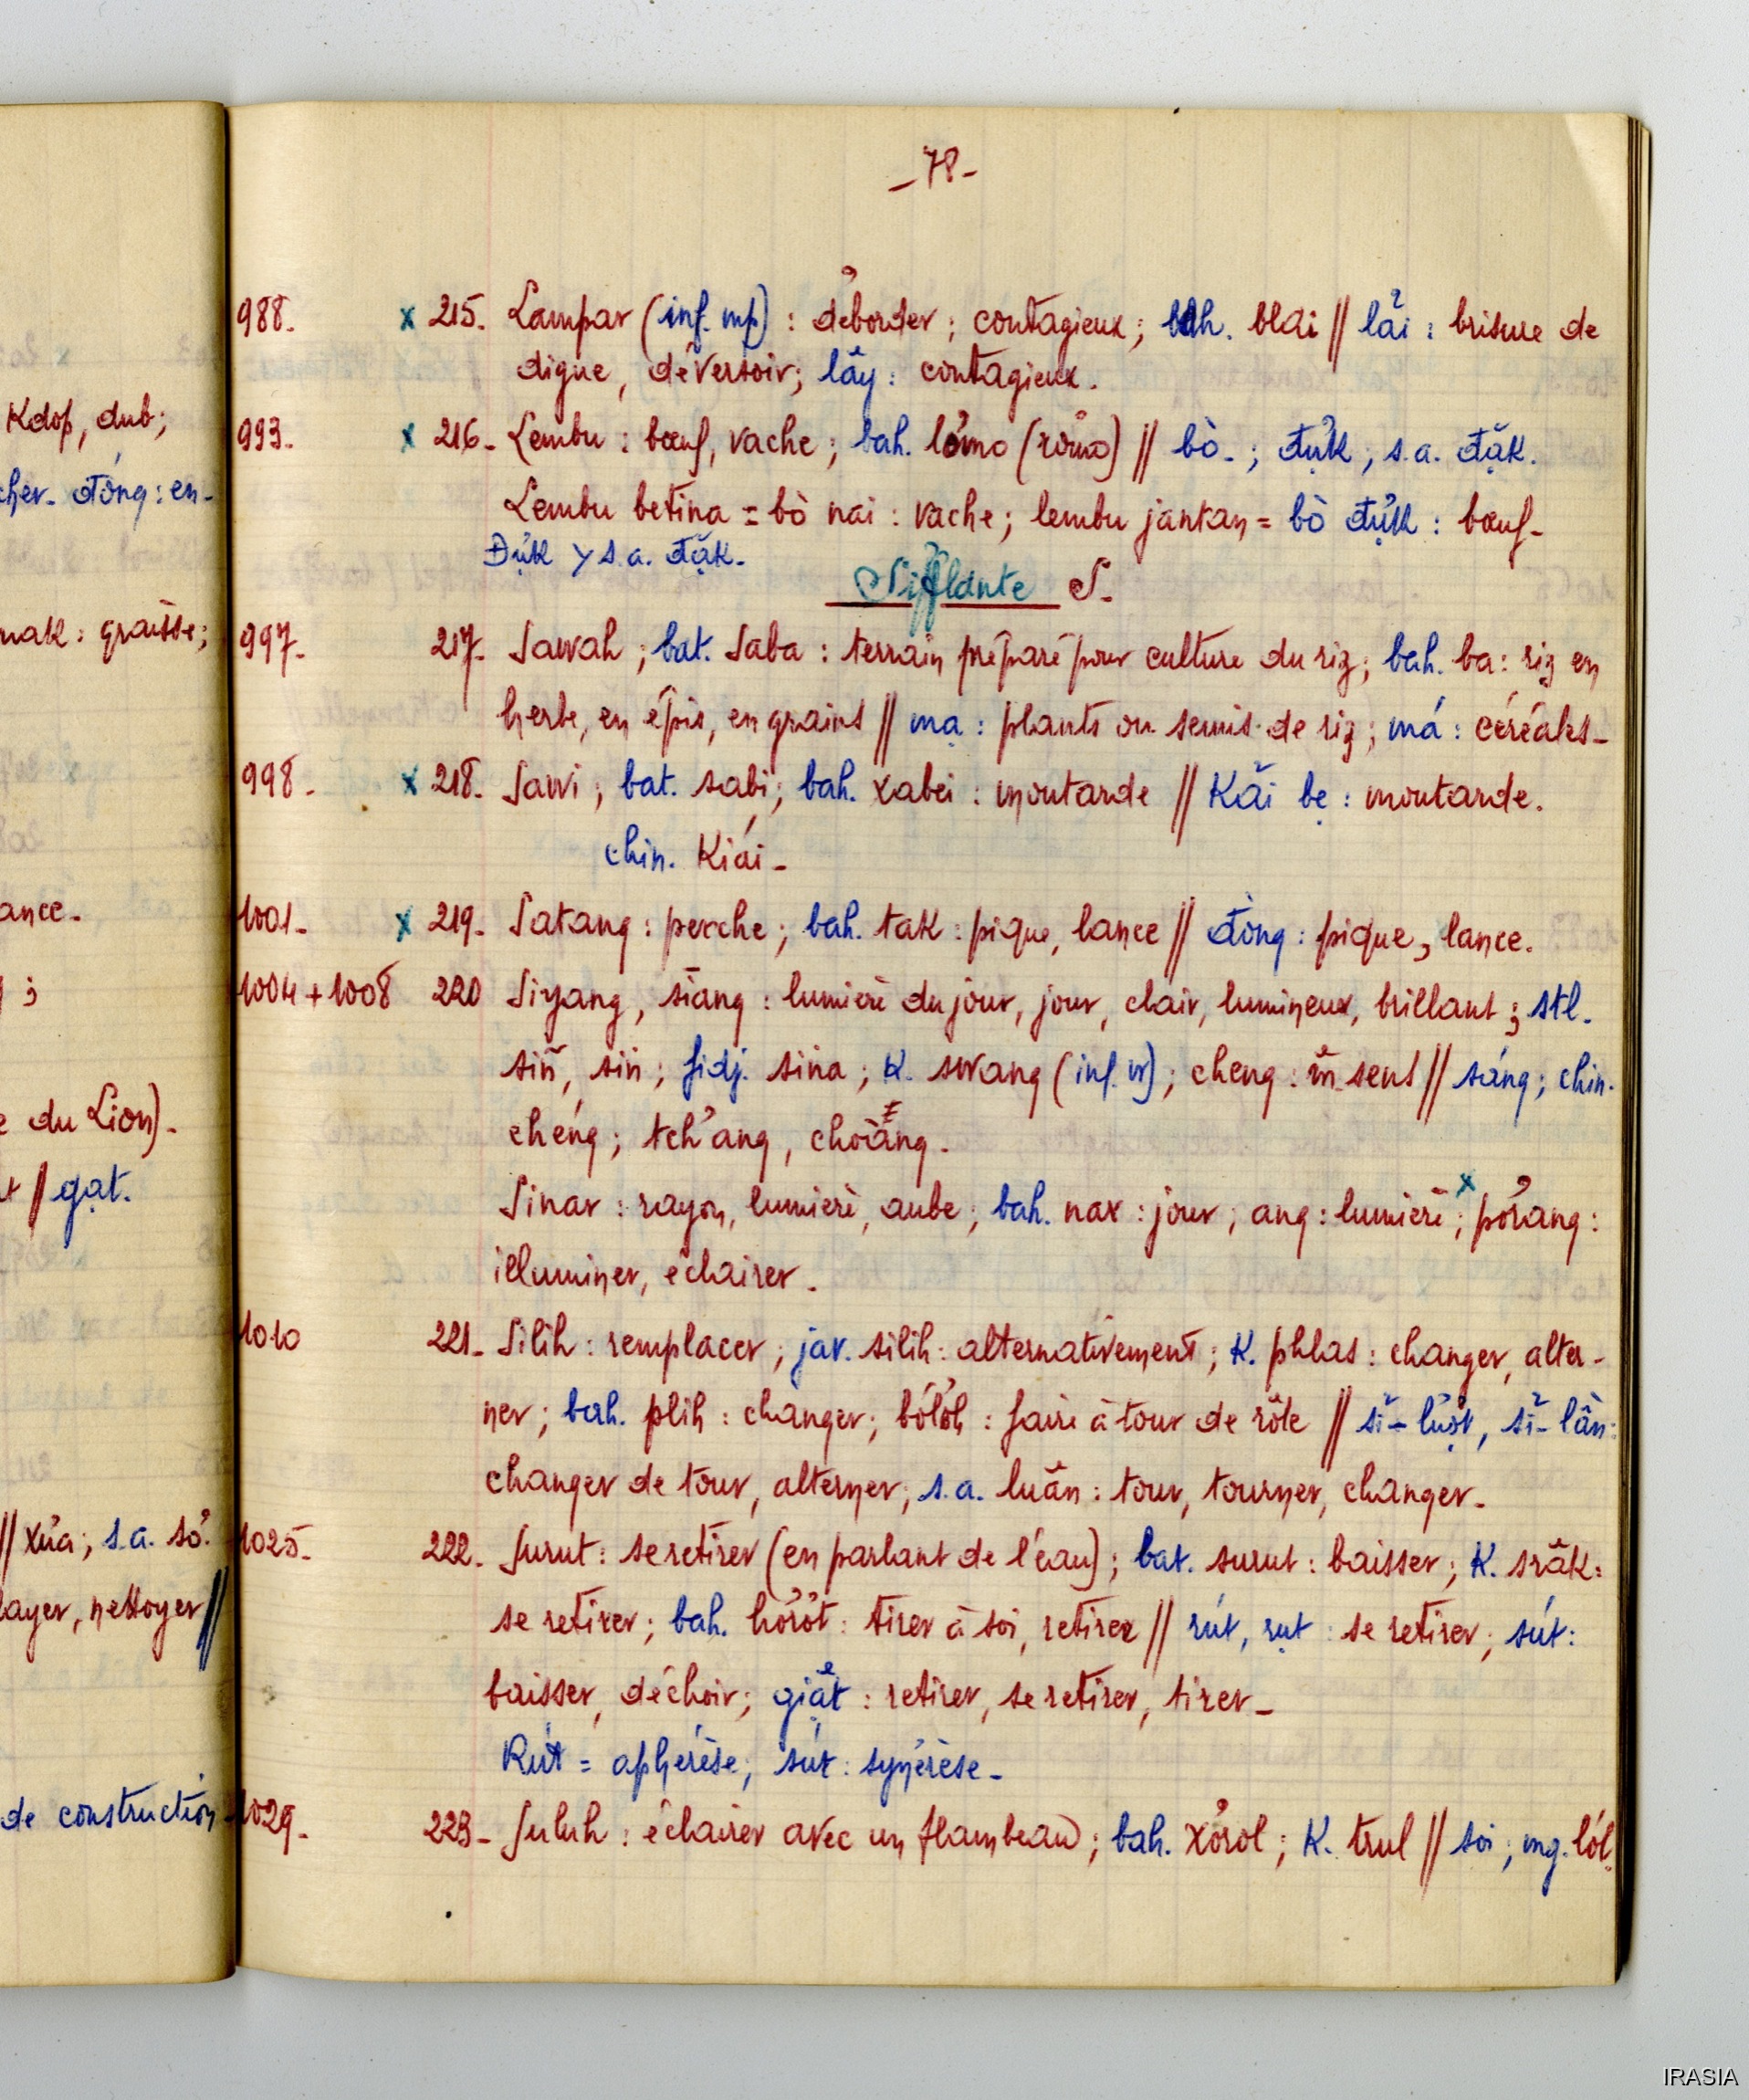 _78_
988. x 215. Lampar (inf. mp) : déborder ; contagieux ; bah. blai // lãi : brisure de
digue, déversoir ; lây : contagieux.
993. x 216. Lembu : bœuf, vache ; bah. lơmo (rơmo) // bò ; đực ; s.a. đặk.
Lembu betina = bò nai : vache ; lembu jantan = bò đựk : bœuf_
Đựk > s.a. đặk.
Sifflante S.
997. 217. Sawah ; bat. Saba : terrain préparé pour culture du riz ; bah. ba : riz en
herbe, en épis, en grains // mạ : plants ou semis de riz ; má : céréales_
998. x 218. Sawi ; bat. sabi ; bah. xabei : moutarde // Kãi bẹ : moutarde.
chin. Kiái_
1001. x 219. Satang : perche ; bah. tak : pique, lance // đòng : pique, lance.
1004 + 1008 220 Siyang, siang : lumière du jour, jour, clair, lumineux, brillant ; stl.
siñ, sin ; fidj. sina ; K. swang (inf. w) ; cheng : m̂ sens // sáng ; chin.
chéng ; tch'ang, choăng.
Sinar : rayon, lumière, aube ; bah. nar : jour ; ang : lumière ; x pơrang :
illuminer, éclairer_
1010 221_ Silih : remplacer ; jav. silih : alternativement ; K. phlas : changer, alter-
ner ; bah. plih : changer ; bơlơh : faire à tour de rôle // sĩ-lượt, sĩ-lần :
changer de tour, alterner ; s.a. luân : tour, tourner, changer_
1025. 222. Surut : se retirer (en parlant de l'eau) ; bat. surut : baisser ; K. srâk :
se retirer ; bah. hơrơt : tirer à soi, retirer // rút, rụt : se retirer ; sút :
baisser, déchoir ; giật : retirer, se retirer, tirer_
Rút = aphérèse ; sút : synérèse_
1029. 223_ Suluh : éclairer avec un flambeau ; bah. xơrol ; K. trul // soi ; mg. lól.
Kdop, dub ;
đóng : en-
graisse ;
ance_
;
e du Lion)_
// gạt.
// xưa ; s.a. sơ.
layer, nettoyer //
de construction_
IRASIA